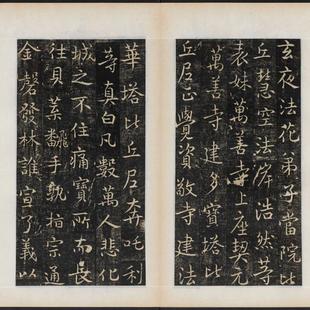 玄夜法花弟子當院比
丘慧空法岸浩然等
表妹萬善寺上座契元
萬善寺建多寶塔比
丘尼正覺資敬寺建法
華塔比丘尼奔吒利
等真白凡數萬人悲化
城之不住痛寶所而長
往貝葉飛翻手孰指宗通
金磬發林誰宣了義以